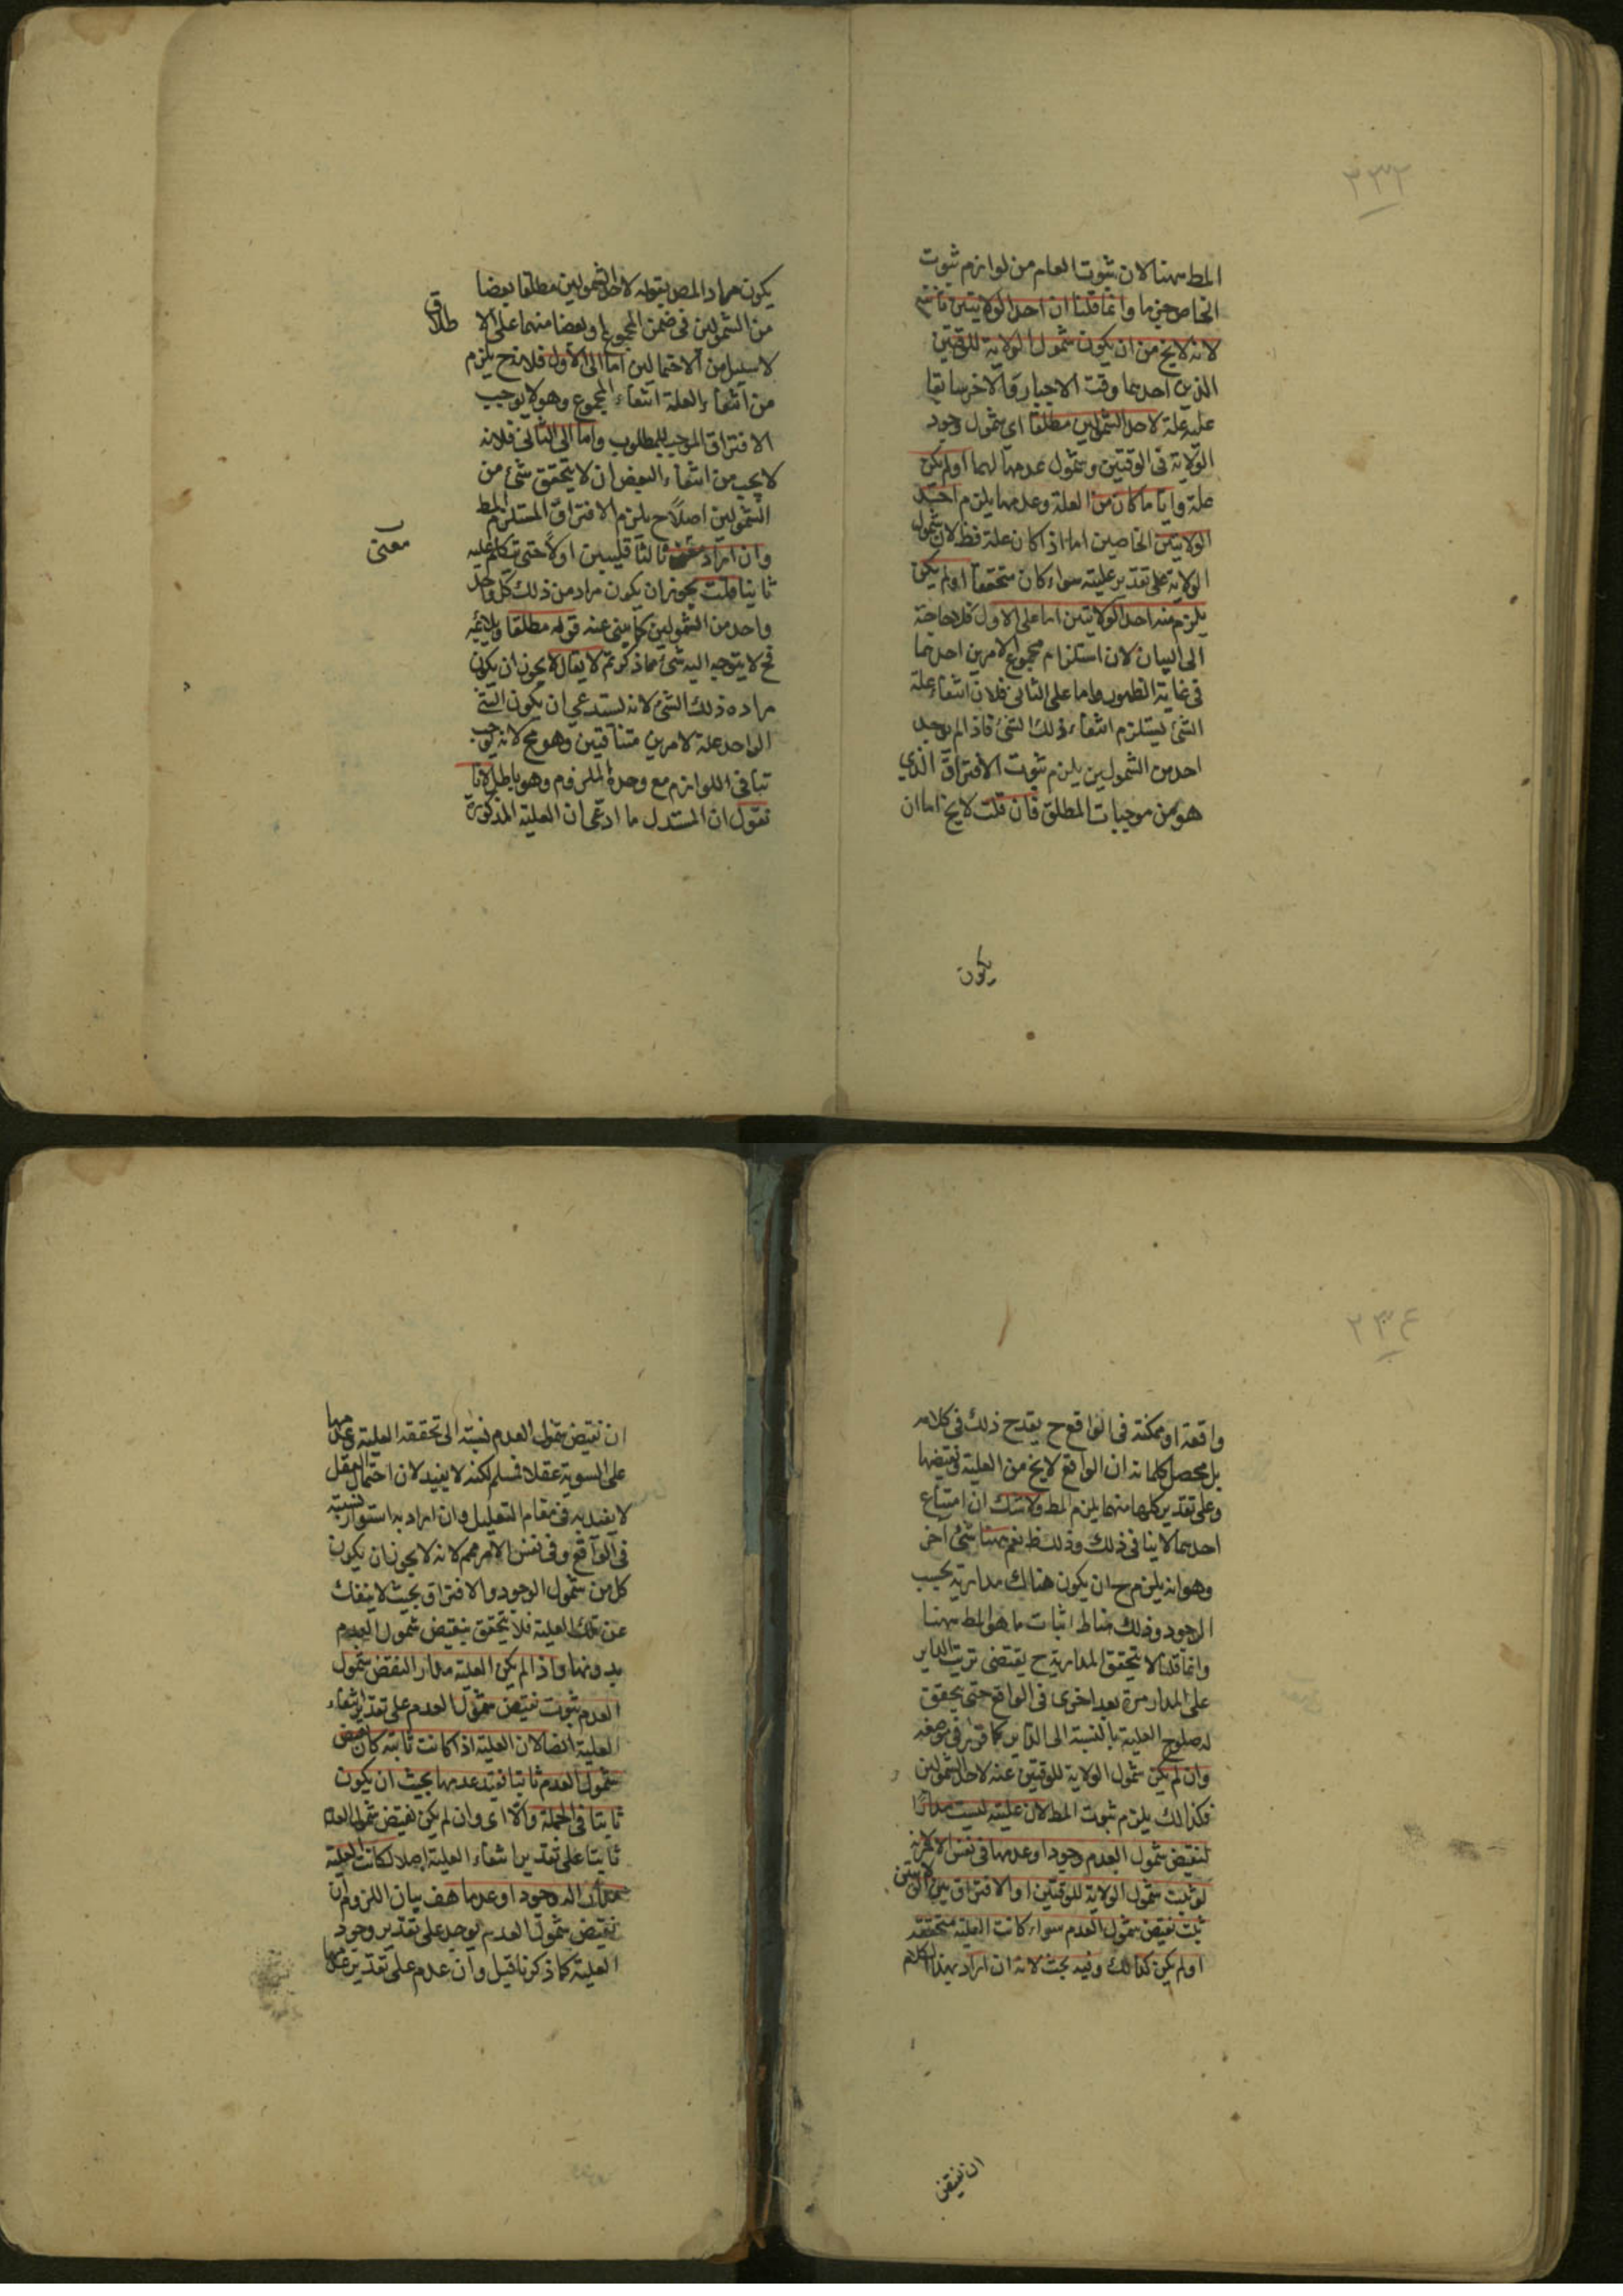 ٢٣٣
المط ههنا لان ثبوت العام من لوازم ثبوت
الخاص جزما وانما قلنا ان احد الولايتين ثابتة
لانه لا يخ من ان يكون شمول الولاية للوقتين
الذين احدهما وقت الاجبار والاخر سابقا
عليه علة لاحد الشمولين مطلقا اى شمول وجود
الولاية فى الوقتين وشمول عدمها لهما اولم يكن
علة وايا ما كان من العلة وعدمها يلزم احد
الولايتين الخاصين اما اذا كان علة فظ لان شمول
الولاية على تقدير عليته سواء كان متحققا اولم يكن
يلزم منه احد الولايتين اما على الاول فلا حاجة
الى البيان لان استلزام مجموع الامرين احدهما
فى غاية الظهور واما على الثانى فلان انتفاء علة
الشئ يستلزم انتفاء ذلك الشئ فاذا لم يوجد
احد من الشمولين يلزم ثبوت الافتراق الذي
هو من موجبات المطلق فان قلت لا يخ اما ان
يكون
يكون مراد المص بقوله لاحد الشمولين مطلقا بعضا
من الشمولين فى ضمن المجموع او بعضا منهما على الا
طلاق
لا سبيل من الاحتمالين اما الى الاول فلانه ح يلزم
من انتفاء العلة انتفاء المجموع وهو لا يوجب
الافتراق الموجب للمطلوب واما الى الثانى فلانه
لا يجب من انتفاء البعض ان لا يتحقق شئ من
الشمولين اصلا ح يلزم الافتراق المستلزم للمط
وان اراد ثالثا فليبين اولا حتى نتكلم عليه
معنى
ثانيا قلت يجوز ان يكون مراده من ذلك كل واحد
واحد من الشمولين كما ينبئ عنه قوله مطلقا ويلائمه
فح لا يتوجه اليه شئ مما ذكرتم لا يقال لا يجوز ان يكون
مراده ذلك الشئ لانه يستدعى ان يكون الشئ
الواحد علة لامرين متنافيين وهو مح لانه يوجب
تنافى اللوازم مع وحدة الملزوم وهو باطل لانا
نقول ان المستدل ما ادعى ان العلية المذكورة
٢٣٤
واقعة او ممكنة فى الواقع ح يقدح ذلك فى كلامه
بل محصل كلامه ان الواقع لا يخ من العلية ونقيضها
وعلى تقدير كل منهما يلزم المط ولا شك ان امتناع
احدهما لا ينافى ذلك وذلك ظ نعم ههنا شئ آخر
وهو انه يلزم ح ان يكون هنالك مدارية بحسب
الوجود وذلك مناط اثبات ما هو المط ههنا
وانما قلنا لا تتحقق المدارية ح يقتضى ترتب الداير
على المدار مرة بعد اخرى فى الواقع حتى يحقق
له صلوح العلية بالنسبة الى الداير كما قرر فى موضعه
وان لم يكن شمول الولاية للوقتين علة لاحد الشمولين
فكذالك يلزم ثبوت المط لان عليته ليست مدارا
لنقيض شمول العدم وجودا وعدما فى نفس الامر لانه
لو ثبت شمول الولاية للوقتين او الافتراق بين الولايتين
ثبت نقيض شمول العدم سواء كانت العلية متحققة
اولم يكن كذالك وفيه بحث لانه ان اراد بهذا الكلام
ان نقيض
ان نقيض شمول العدم نسبته الى تحقق العلية وعدمها
على السوية عقلا فمسلم لكنه لا يفيد لان احتمال العقل
لا يفيد به فى مقام التعليل وان اراد به استواء نسبته
فى الواقع وفى نفس الامر فمم لانه لا يجوز ان يكون
كل من شمول الوجود والافتراق بحيث لا ينفك
عن تلك العلية فلا يتحقق نقيض شمول العدم
بدونها واذا لم يكن العلية مدار النقيض شمول
العدم ثبوت نقيض شمول العدم على تقدير انتفاء
العلية ايضا لان العلية اذا كانت ثابتة كان نقيض
شمول العدم ثابتا فعند عدمها يجب ان يكون
ثابتا فى الجملة والا اى وان لم يكن نقيض شمول العدم
ثابتا على تقدير انتفاء العلية اصلا لكانت العلية
مدارا له وجودا وعدما هف بيان اللزوم ان
نقيض شمول العدم يوجد على تقدير وجود
العلية كما ذكرنا قبيل وان عدم على تقدير عدمها